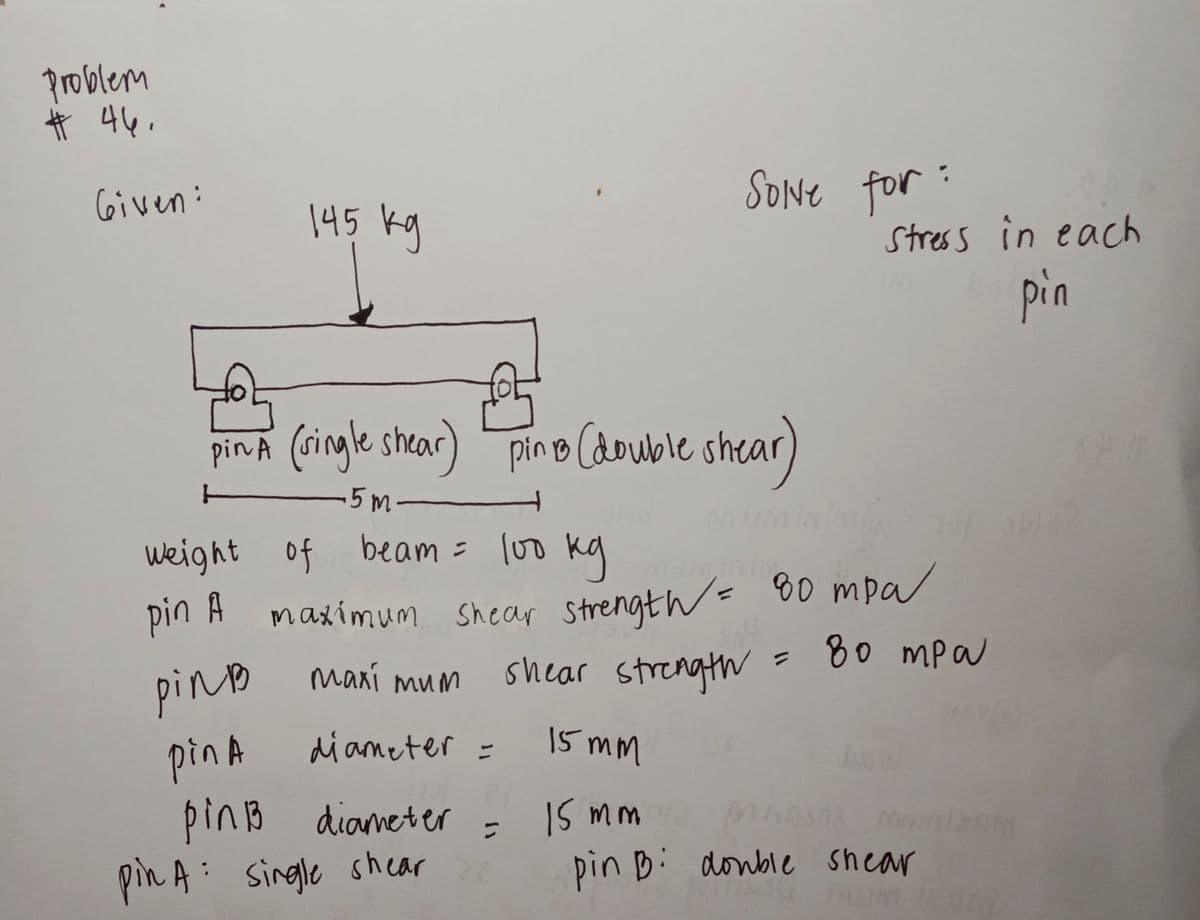 Problem
# 46.
Given:
145 kg
Solve for:
stress in each
pin
pin A (single shear) pin B (double shear)
5 m
weight of beam = 100 kg
pin A maximum shear strength = 80 mpa
pin B maximum shear strength = 80 mpa
pin A diameter = 15 mm
pin B diameter = 15 mm
pin A: single shear pin B: double shear